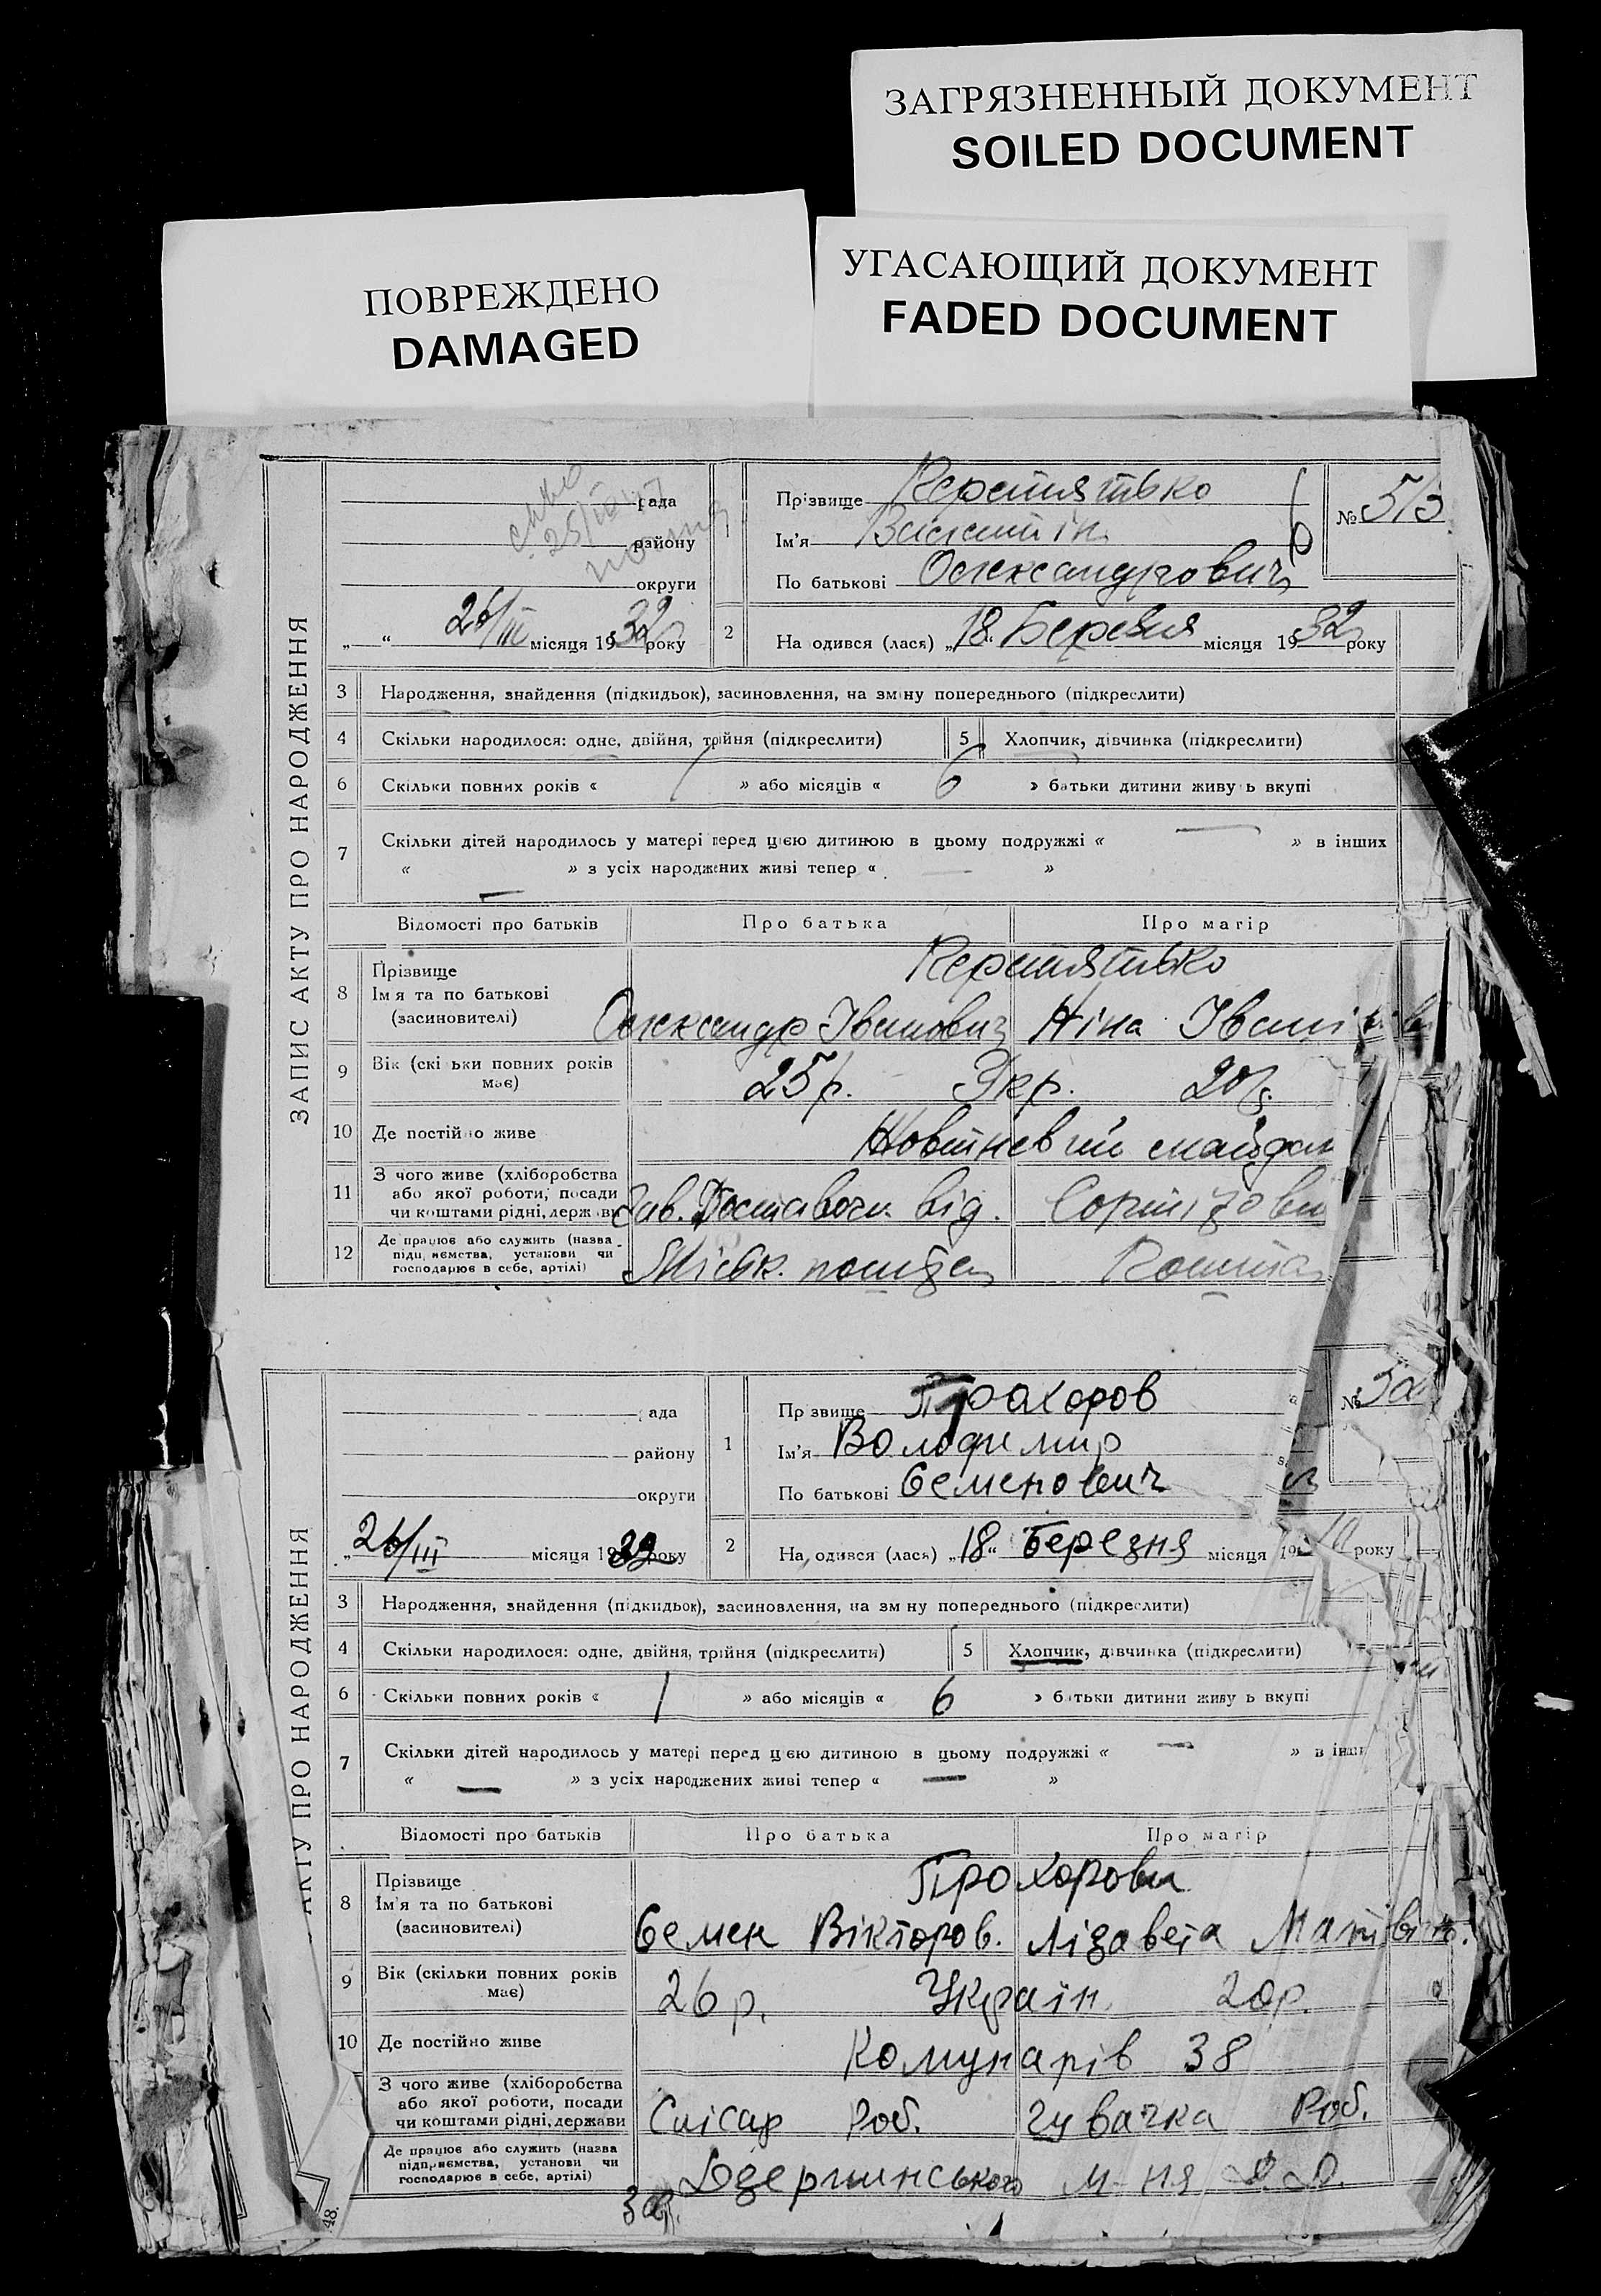 ЗАГРЯЗНЕННЫЙ ДОКУМЕНТ
SOILED DOCUMENT
ПОВРЕЖДЕНО
DAMAGED
УГАСАЮЩИЙ ДОКУМЕНТ
FADED DOCUMENT
ЗАПИС АКТУ ПРО НАРОДЖЕННЯ
рада
району
округи
26/III місяця 1932 року
1
Прізвище
Ім'я
По батькові Олександрович
№
2
На одився (лася) „18“ Березня місяця 1932 року
3 Народження, знайдення (підкидьок), засиновлення, на зміну попереднього (підкреслити)
4 Скільки народилося: одне, двійня, трійня (підкреслити)
5 Хлопчик, дівчинка (підкреслити)
6 Скільки повних років « 1 » або місяців « 6 » батьки дитини живу ь вкупі
7 Скільки дітей народилось у матері перед цією дитиною в цьому подружжі « — » в інших
« — » з усіх народжених живі тепер « — »
Відомості про батьків Про батька Про матір
8 Прізвище
Ім'я та по батькові
(засиновителі)
Олександр Іванович Ніна
9 Вік (скі ьки повних років має) 25 р. Укр. 20 р.
10 Де постійно живе майдан
11 З чого живе (хліборобства
або якої роботи, посади
чи коштами рідні, держави
Зав. від.
12 Де працює або служить (назва
підприємства, установи чи
господарює в себе, артілі)
Міськ. пошта Пошта
АКТУ ПРО НАРОДЖЕННЯ
ада
району
округи
„26/III місяця 1932 року
1
Пр звище Прохоров
Ім'я Володимир
По батькові Семенович
№
2
На одився (лася) „18“ Березня місяця 193 року
3 Народження, знайдення (підкидьок), засиновлення, на зм ну попереднього (підкреслити)
4 Скільки народилося: одне, двійня, трійня (підкреслити)
5 Хлопчик, дівчинка (підкреслити)
6 Скільки повних років « 1 » або місяців « 6 » батьки дитини живу ь вкупі
7 Скільки дітей народилось у матері перед цією дитиною в цьому подружжі « — » в інши
« — » з усіх народжених живі тепер « — »
Відомості про батьків Про батька Про матір
8 Прізвище
Ім'я та по батькові
(засиновителі)
Прохорови
Семен Вікторов. Лізавета Матвіїв.
9 Вік (скільки повних років має) 26 р. Україн. 20 р.
10 Де постійно живе Комунарів 38
З чого живе (хліборобства
або якої роботи, посади
чи коштами рідні, держави
Слісар Роб. Роб.
Де працює або служить (назва
підприємства, установи чи
господарює в себе, артілі)
Дзержинського
48.